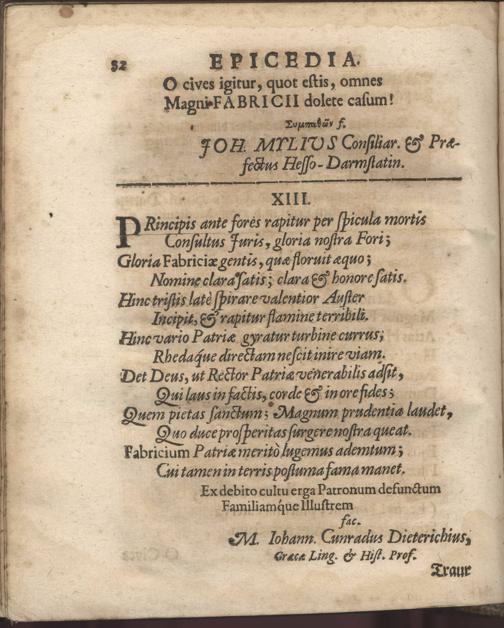 82 EPICEDIA.
O cives igitur, quot eſtis, omnes
Magni FABRICII dolete caſum!
Συμπαθῶν f.
JOH. MYLIUS Conſiliar. & Præ-
fectus Heſſo-Darmſtatin.
XIII.
PRincipis ante forès rapitur per ſpicula mortis
Conſultus Juris, gloria noſtra Fori;
Gloria Fabriciæ gentis, quæ floruit æquo;
Nomine clara ſatis; clara & honore ſatis.
Hinc triſtis latè ſpirare valentior Auſter
Incipit, & rapitur flamine terribili.
Hinc vario Patriæ gyratur turbine currus;
Rhedaq́ue directam neſcit inire viam.
Det Deus, ut Rector Patriæ venerabilis adſit,
Qui laus in factis, corde & in ore fides;
Quem pietas ſanctum; Magnum prudentia laudet,
Quo duce proſperitas ſurgere noſtra queat.
Fabricium Patriæ meritò lugemus ademtum;
Cui tamen in terris poſtuma fama manet.
Ex debito cultu erga Patronum defunctum
Familiamq́ue Illuſtrem
fac.
M. Iohann. Cunradus Dieterichius,
Græcæ Ling. & Hiſt. Prof.
Traur